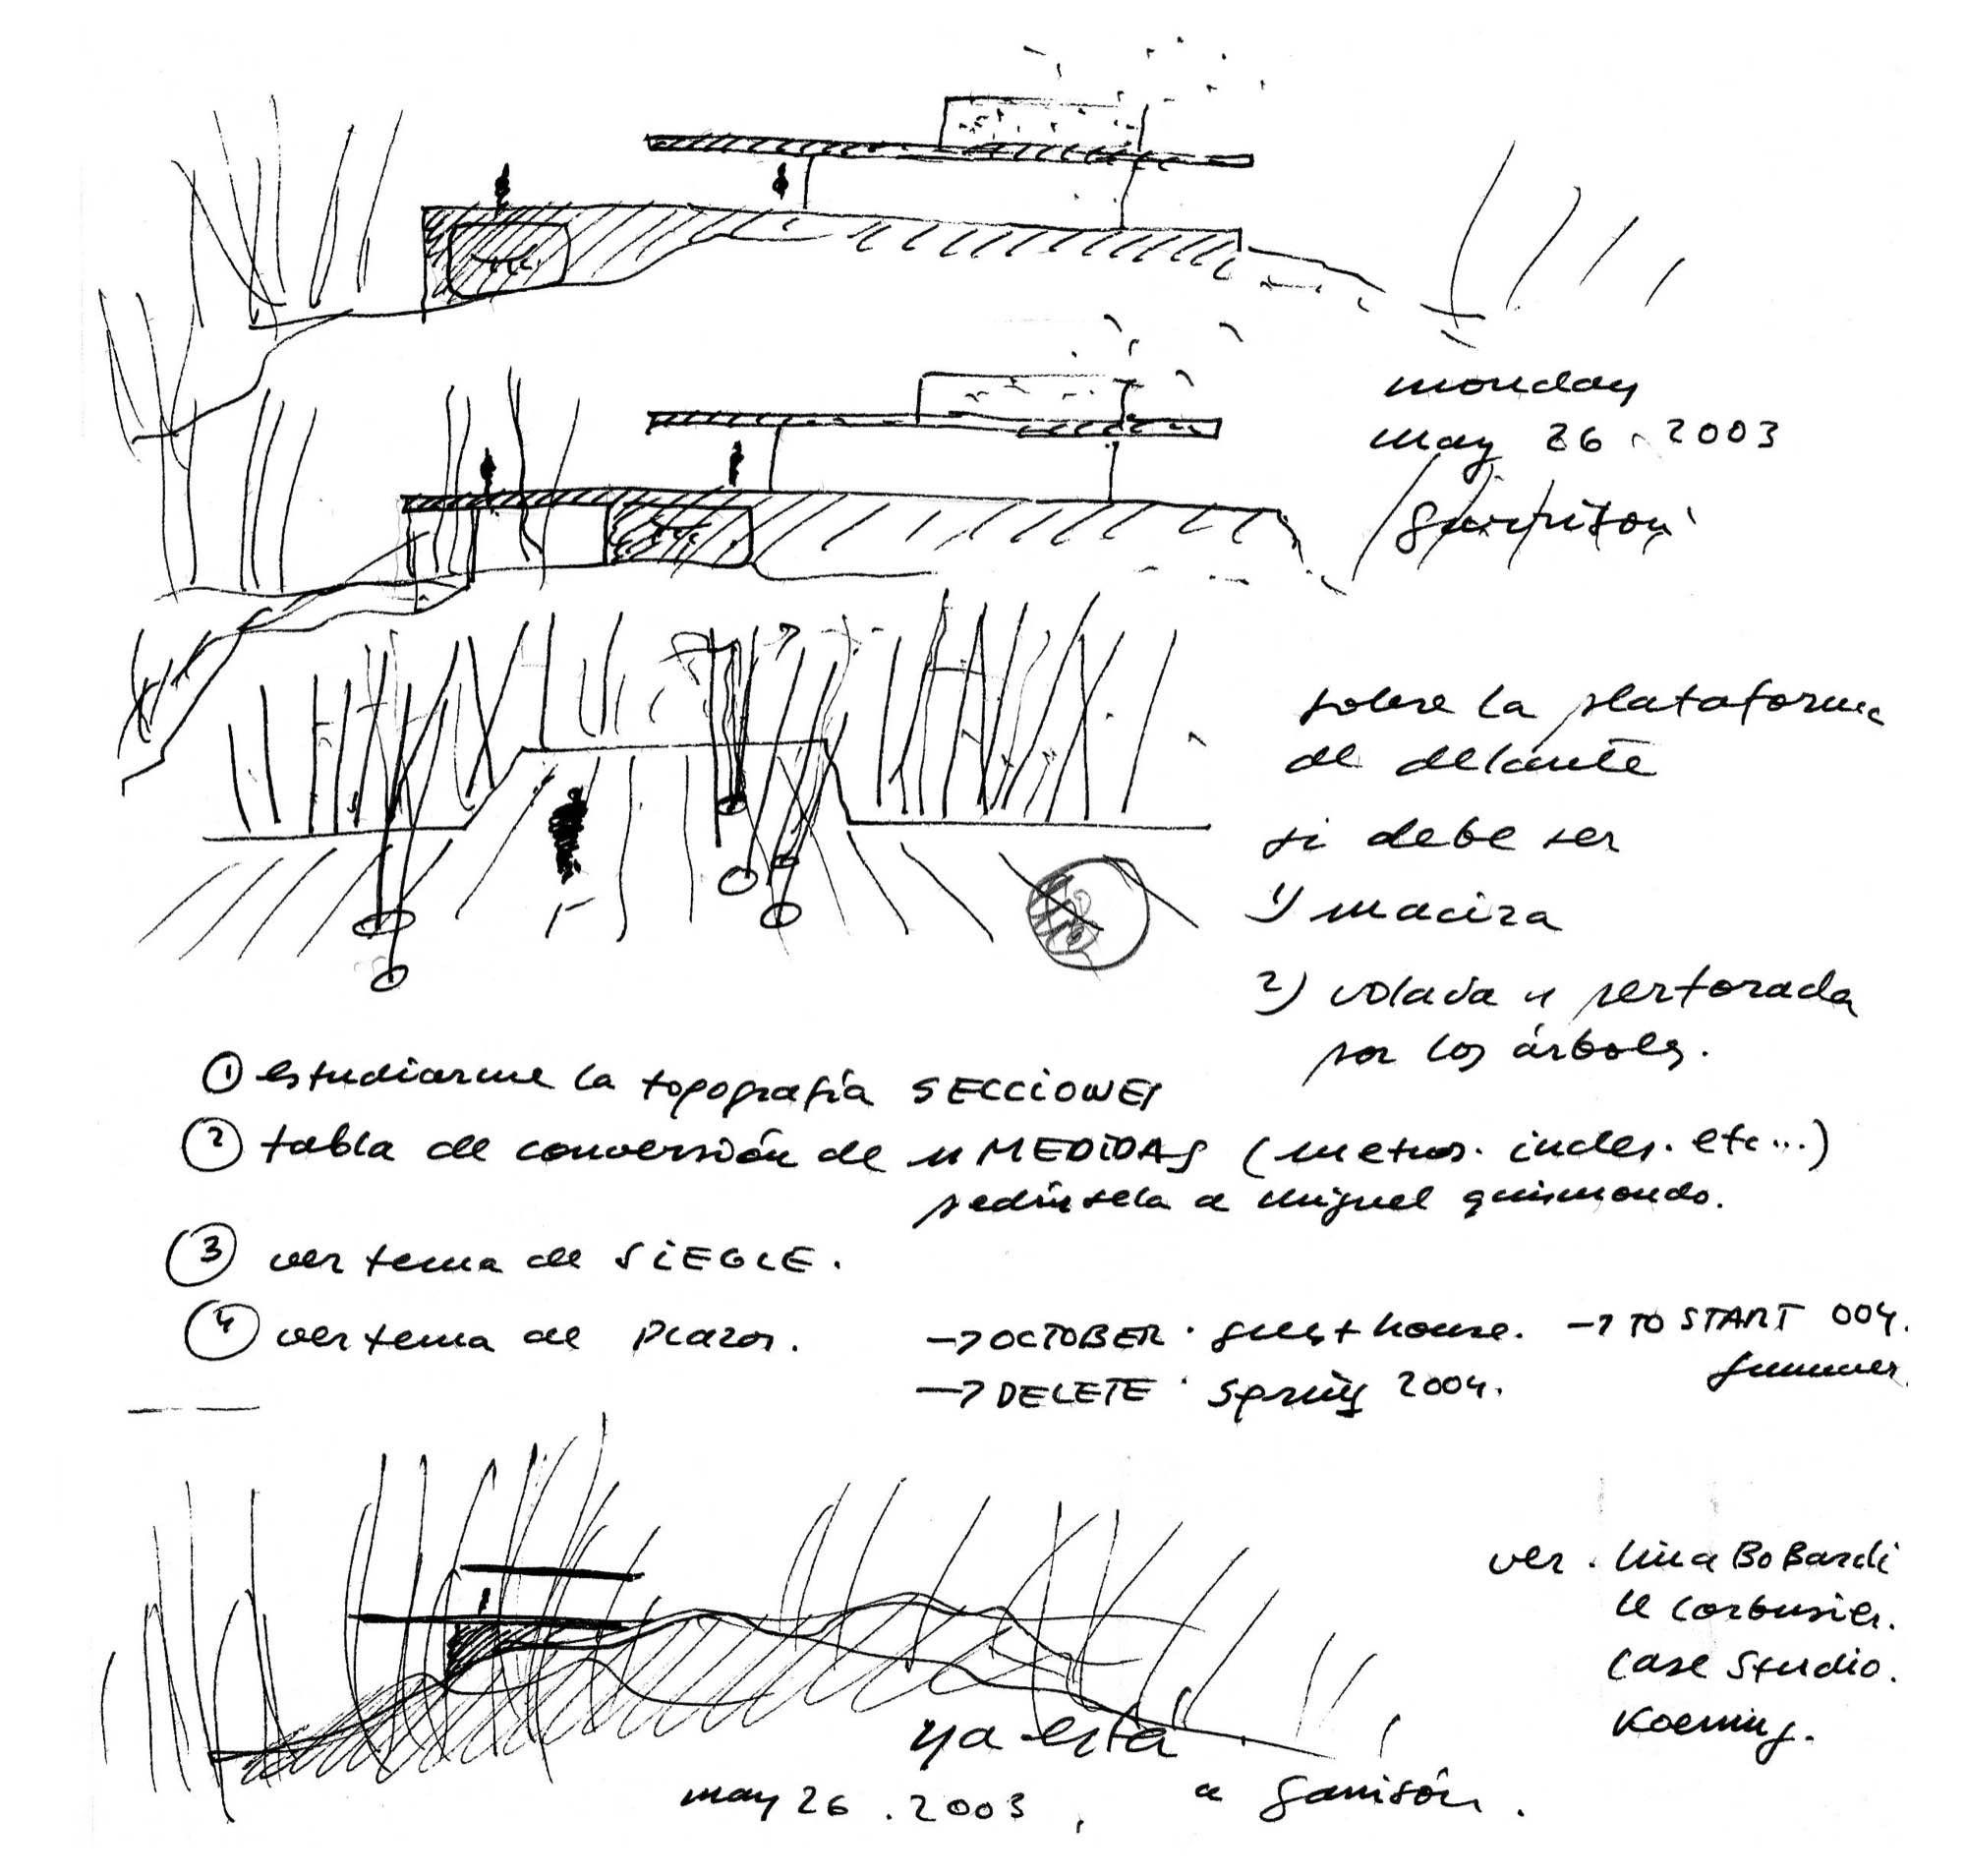 monday
may 26. 2003
garrison
sobre la plataforma
de delante
si debe ser
1) maciza
2) volada y perforada
por los árboles.
① estudiarme la topografía SECCIONES
② tabla de conversión de MEDIDAS (metros. inches. etc...)
pedírsela a miguel quismondo.
③ ver tema de SIEGLE.
④ ver tema de PLAZOS.
→ OCTOBER · guest house. → TO START 004.
summer.
→ DELETE · Spring 2004.
ver. lina Bo Bardi
le corbusier.
case studio.
Koening.
ya está
may 26. 2003, a garrison.